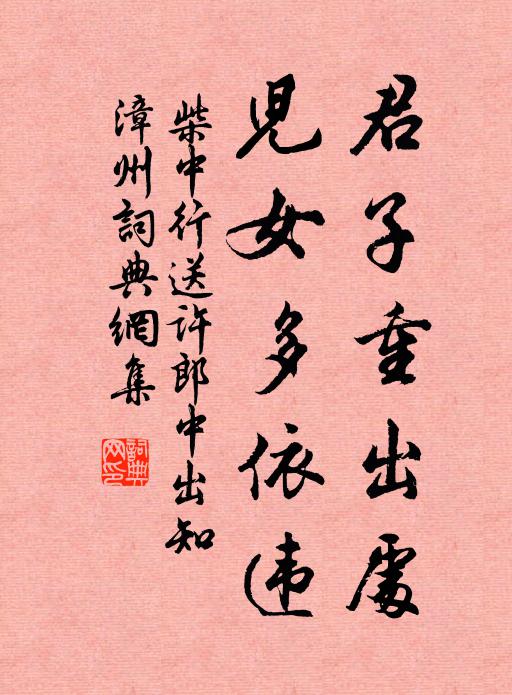 君子重出處
兒女多依违
柴中行送许郎中出知
漳州詞典網集
詞典网印